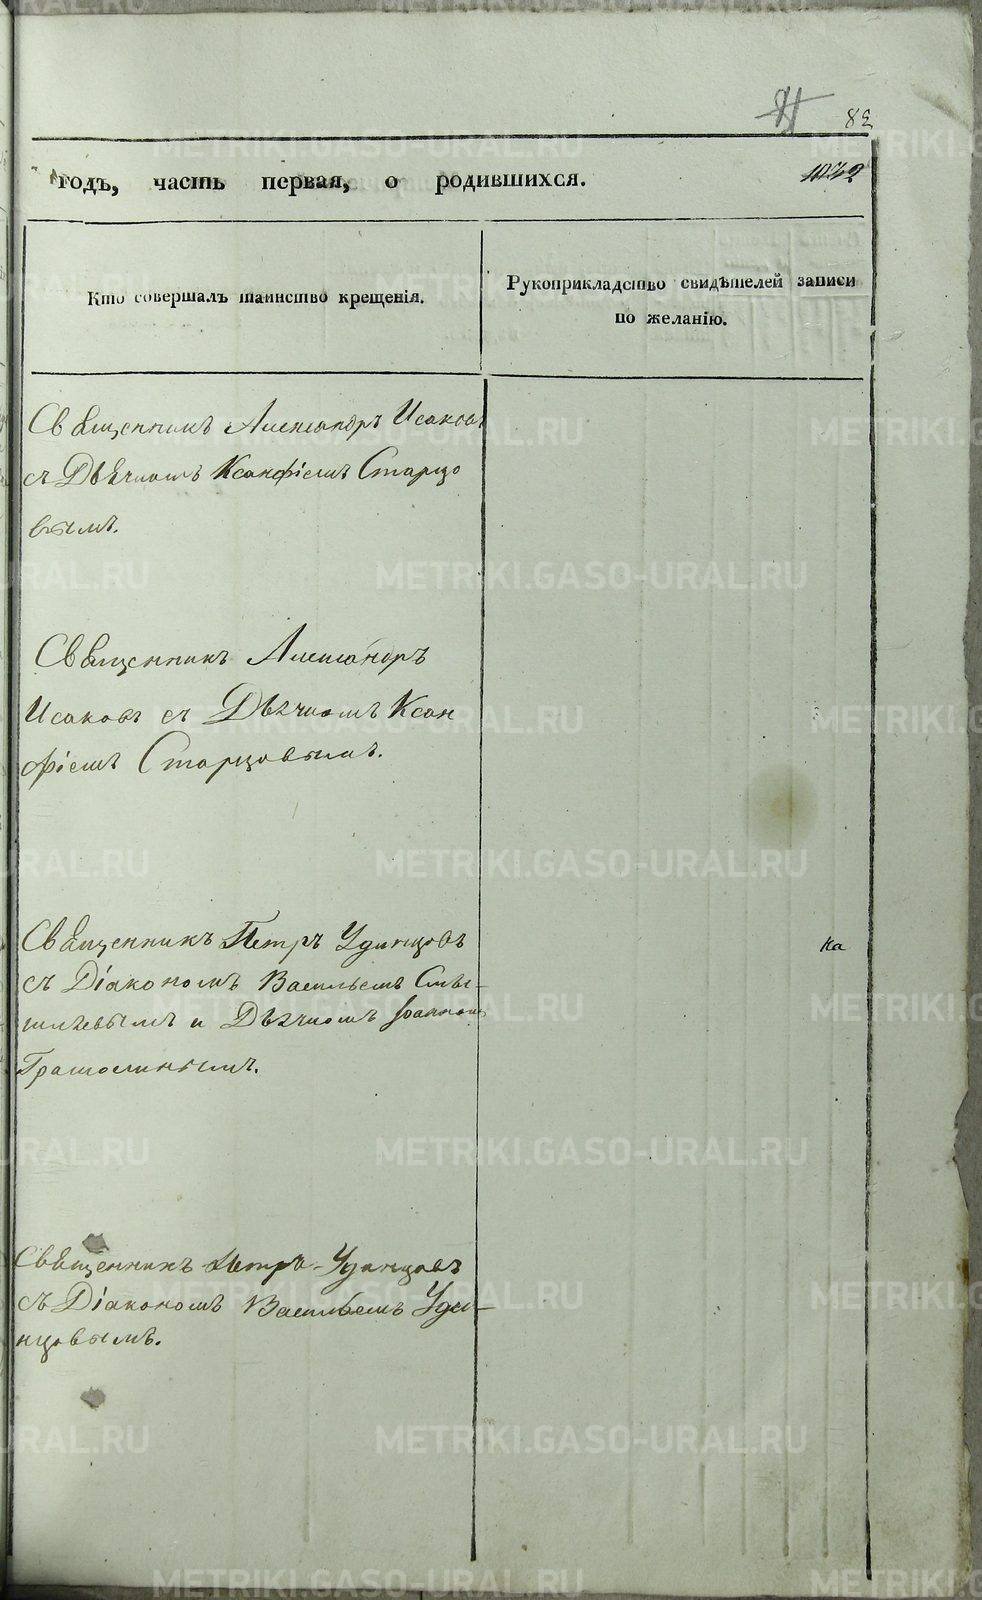 83
годъ, часть первая, о родившихся.
Кто совершалъ таинство крещенія.
Рукоприкладство свидѣтелей записи
по желанію.
Священникъ Александръ Исаковъ
съ Дьячкомъ Ксанфіемъ Старцо
вымъ.
Священникъ Александръ
Исаковъ съ Дьячкомъ Ксан
фіемъ Старцовымъ.
Священникъ Петръ Удинцовъ
съ Діакономъ Васильемъ Смы-
шляевымъ и Дьячкомъ Іоанномъ
ка
Священникъ Петръ Удинцовъ
съ Діакономъ Васильемъ Уди-
нцовымъ.
METRIKI.GASO-URAL.RU